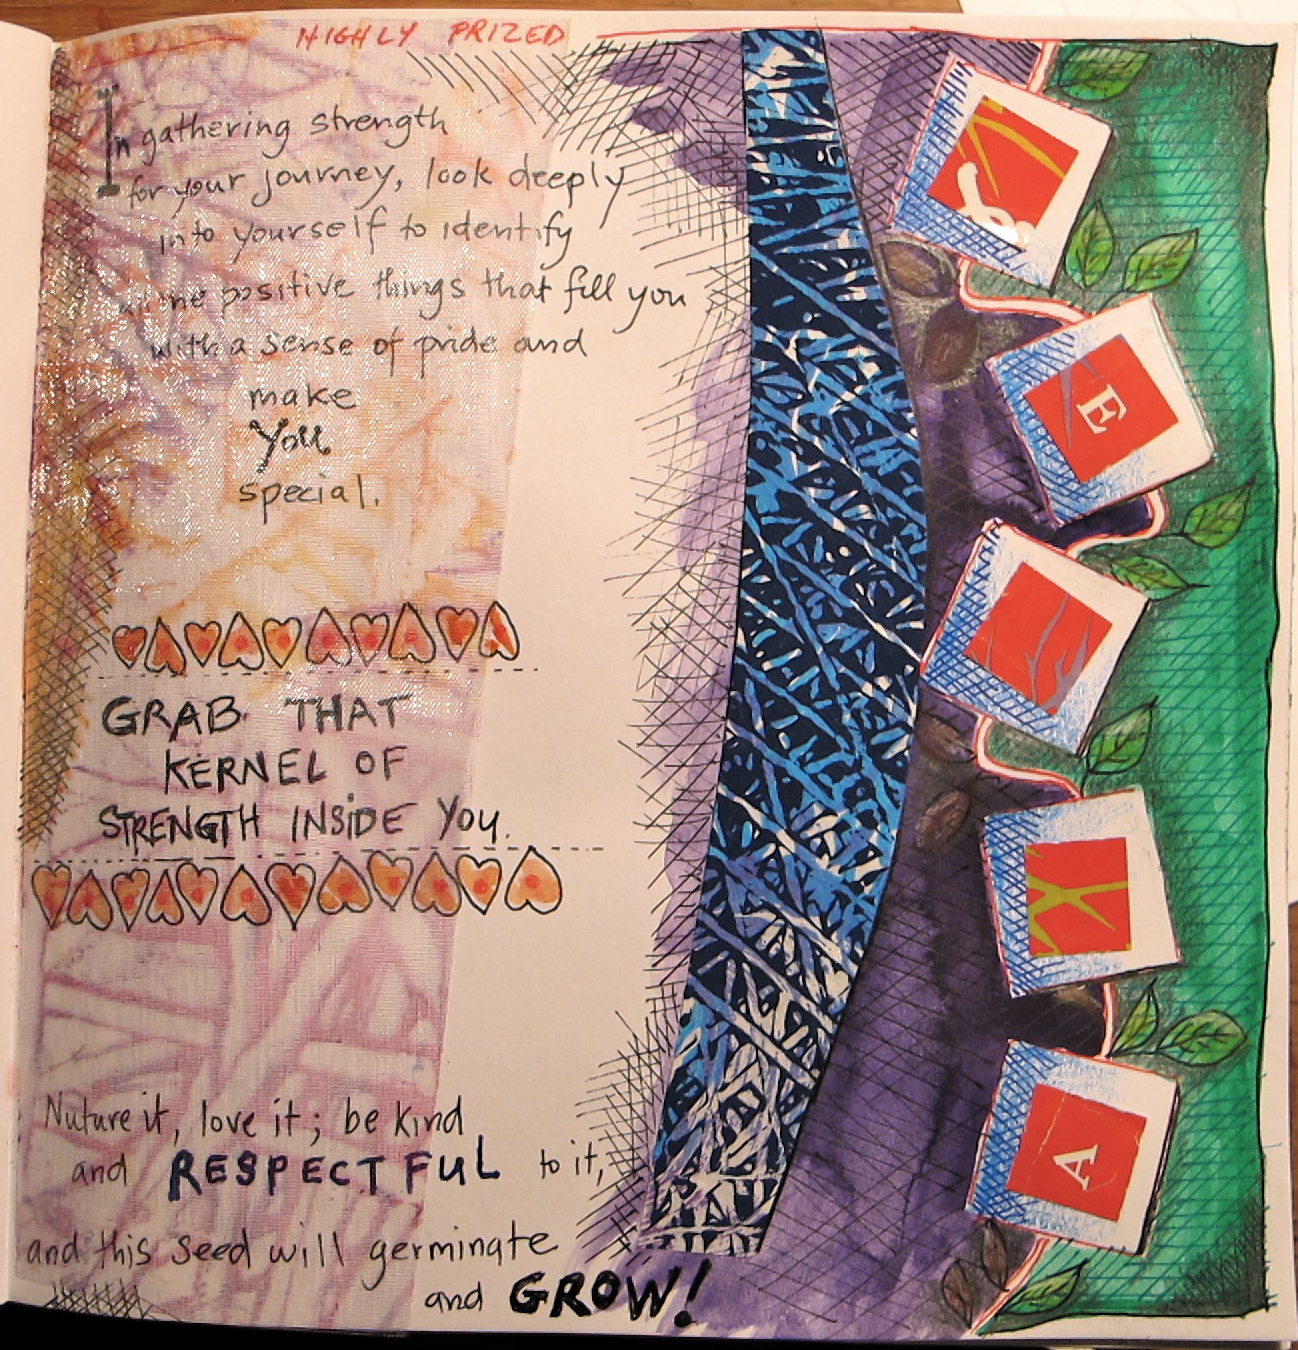 HIGHLY PRIZED
In gathering strength
for your journey, look deeply
into yourself to identify
positive things that fill you
with a sense of pride and
make
You
special.
GRAB THAT
KERNEL OF
STRENGTH INSIDE YOU.
Nuture it, love it; be kind
and RESPECTFUL to it,
and this seed will germinate
and GROW!
E
A